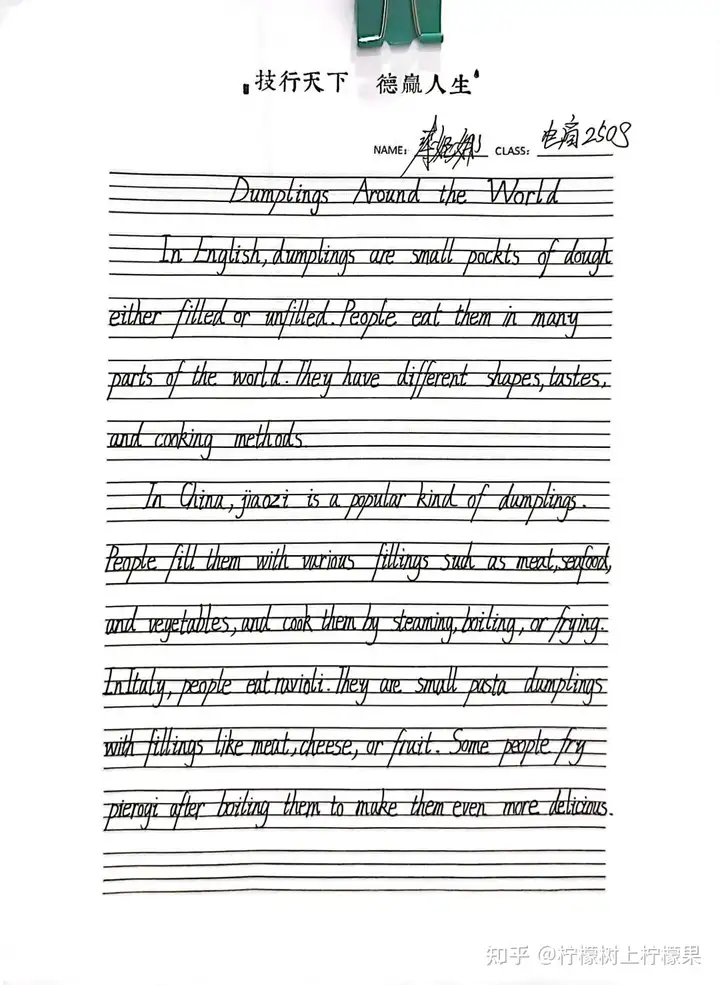 技行天下 德赢人生
NAME: 李妮娜 CLASS: 电商2508
Dumplings Around the World
In English, dumplings are small pockts of dough
either filled or unfilled. People eat them in many
parts of the world. They have different shapes, tastes,
and cooking methods
In China, jiaozi is a popular kind of dumplings.
People fill them with various fillings such as meat, seafood,
and vegetables, and cook them by steaming, boiling, or frying.
In Italy, people eat ravioli. They are small pasta dumplings
with fillings like meat, cheese, or fruit. Some people fry
pierogi after boiling them to make them even more delicious.
知乎 @柠檬树上柠檬果